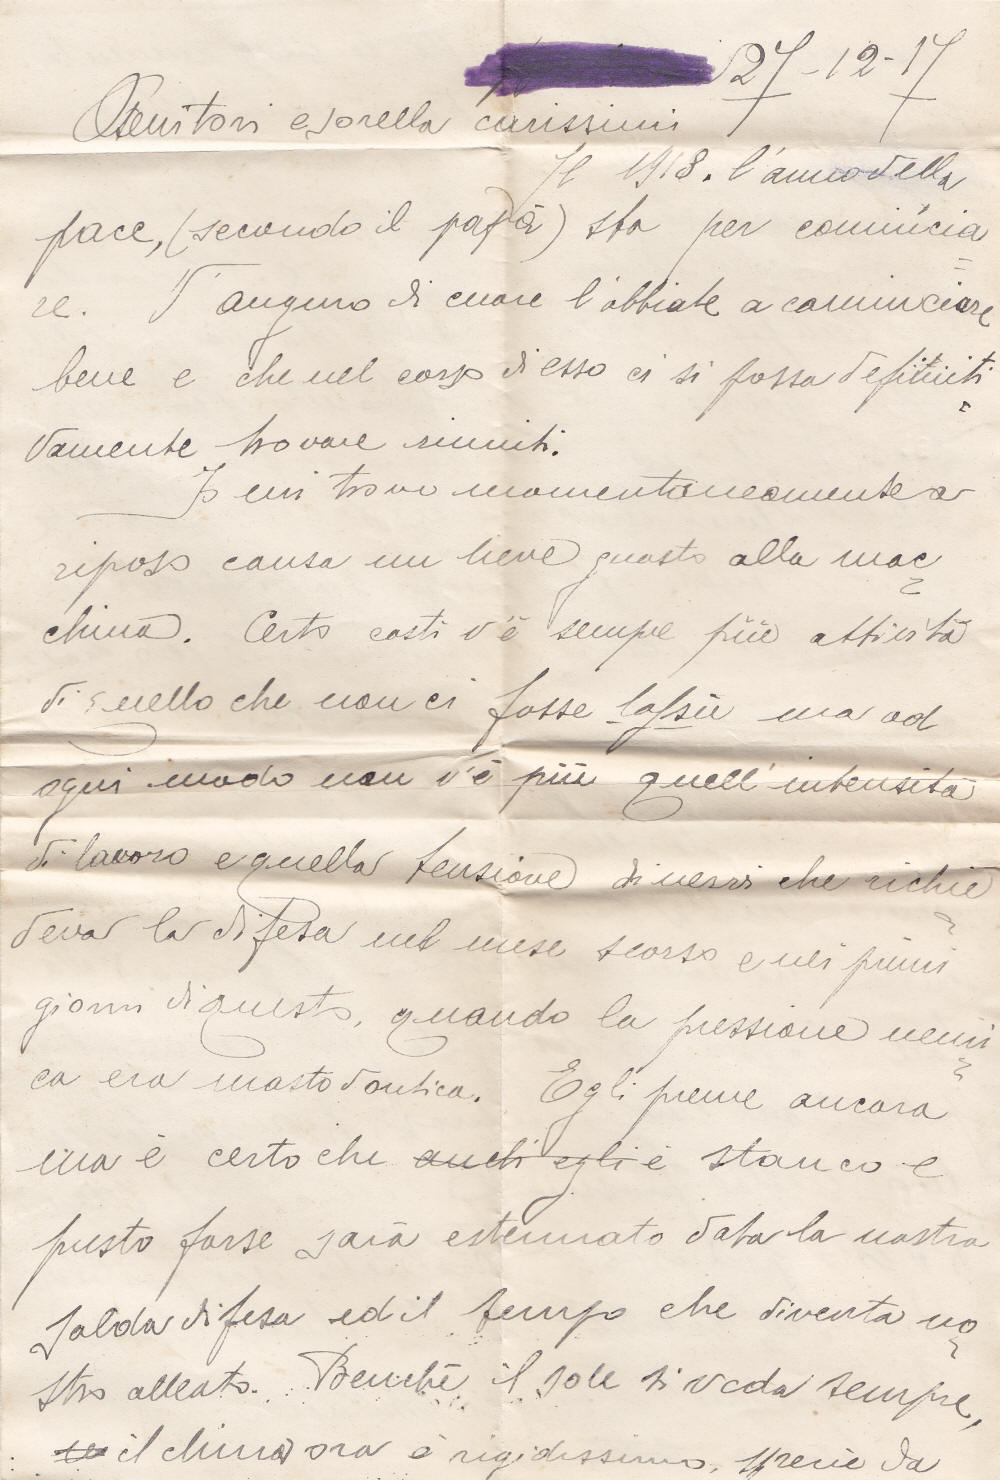 27-12-17
Genitori e sorella carissimi
Il 1918. l'anno della
pace, (secondo il papà) sta per cominicia
re. V'auguro di cuore l'abbiate a cominciare
bene e che nel corso di esso ci si possa definiti
vamente trovare riuniti.
Io mi trovo momentaneamente a
riposo causa un lieve guasto alla mac
china. Certo costì v'è sempre più attività
di quello che non ci fosse lassù ma ad
ogni modo non v'è più quell'intensità
di lavoro e quella tensione di nervi che richie
deva la difesa nel mese scorso e nei primi
giorni di questo, quando la pressione nemi
ca era mastodontica. Egli preme ancora
ma è certo che anch'egli è stanco e
presto forse sarà estenuato data la nostra
salda difesa ed il tempo che diventa no
stro alleato. Benchè il sole si veda sempre,
il clima ora è rigidissimo, specie da